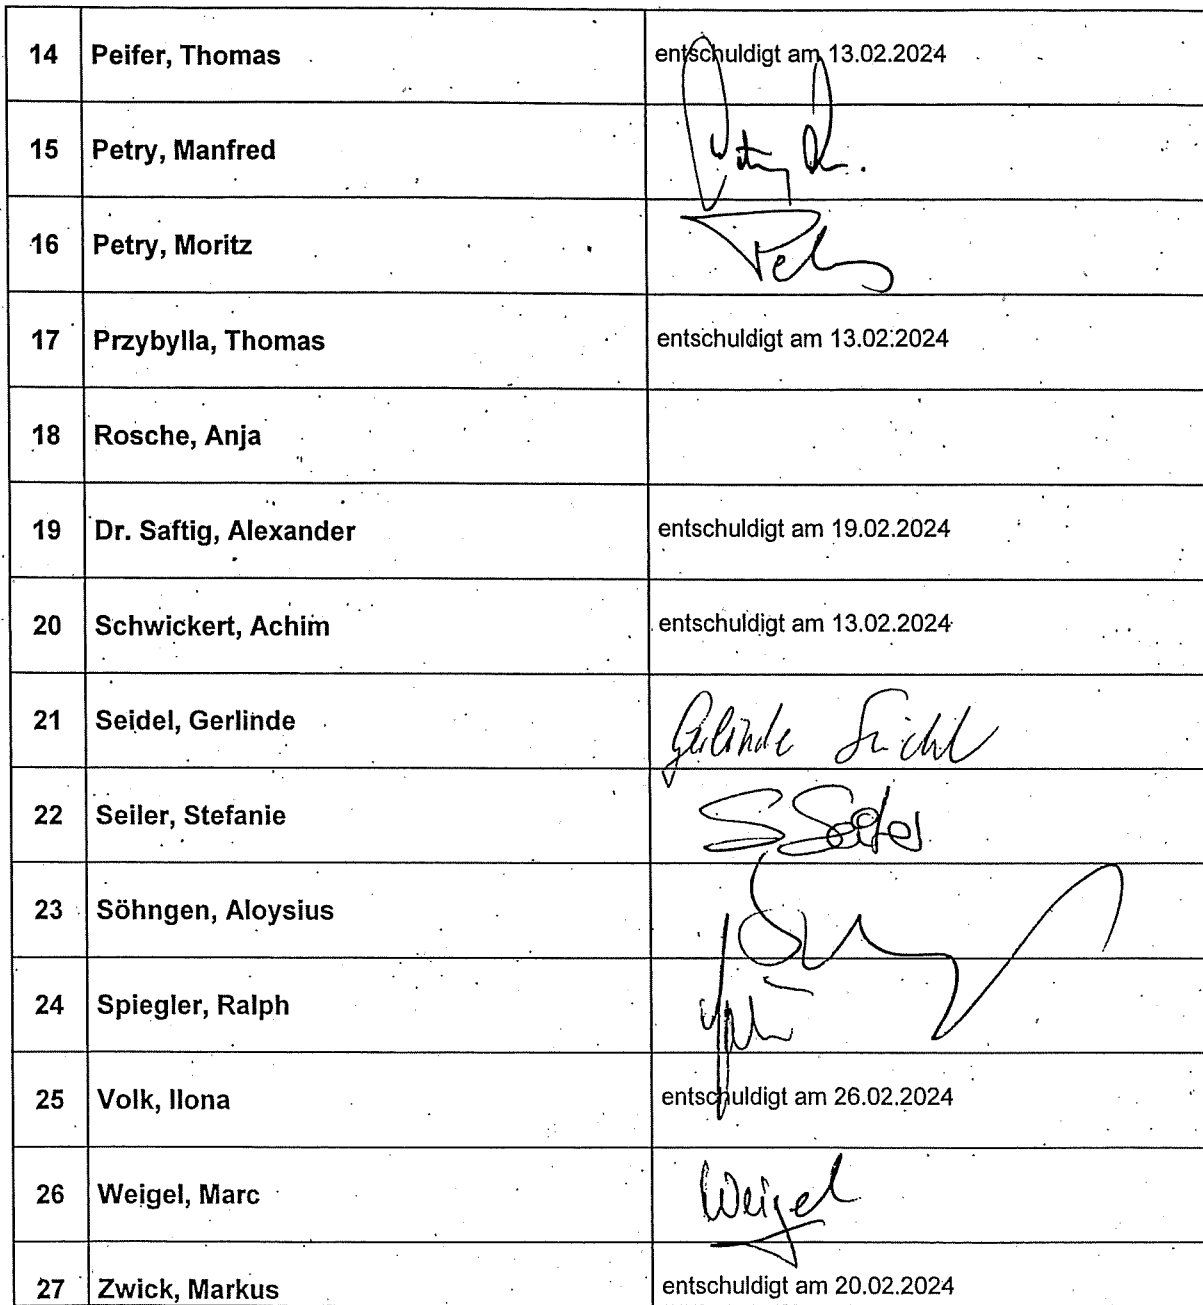 14 Peifer, Thomas entschuldigt am 13.02.2024
15 Petry, Manfred
16 Petry, Moritz
17 Przybylla, Thomas entschuldigt am 13.02.2024
18 Rosche, Anja
19 Dr. Saftig, Alexander entschuldigt am 19.02.2024
20 Schwickert, Achim entschuldigt am 13.02.2024
21 Seidel, Gerlinde Gerlinde Seidel
22 Seiler, Stefanie S Seiler
23 Söhngen, Aloysius
24 Spiegler, Ralph
25 Volk, Ilona entschuldigt am 26.02.2024
26 Weigel, Marc Weigel
27 Zwick, Markus entschuldigt am 20.02.2024